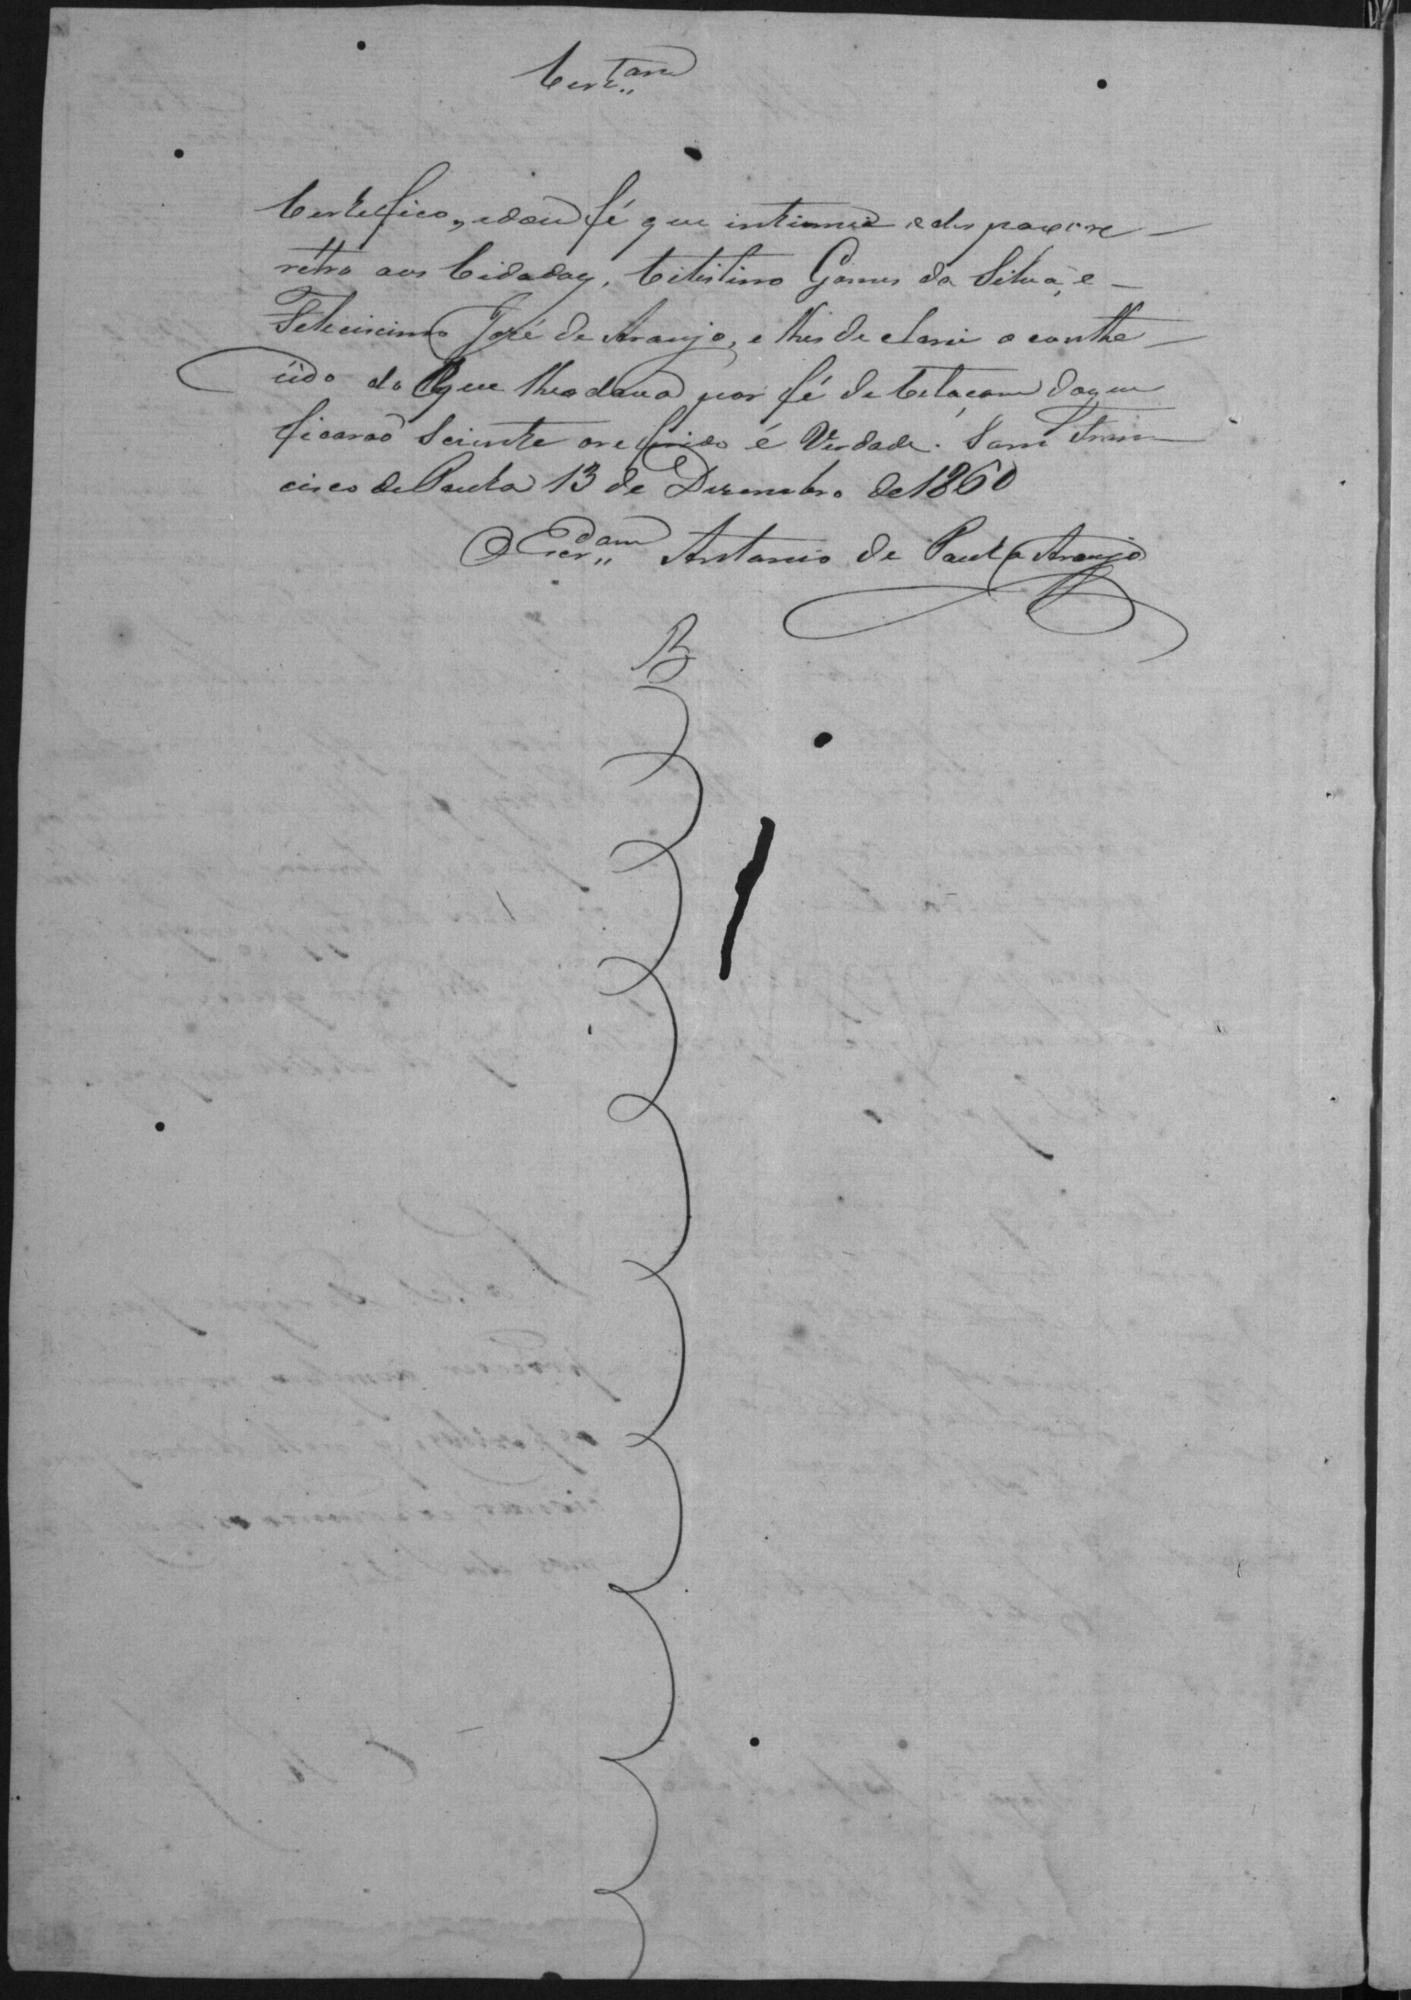 Cert.am
Certefico, e dou fé que intimei o despaxo re
retro aos Cidadoẽs, Celistino Gomes da Silva, e
Feliciscimo José de Araujo, e lhes declarei o conthe
údo do que lhes dava por fé de Citaçam do que
ficaraõ Sciente o referido é Verdade. Sam Fran
cisco de Paula 13 de Dezembro de 1860
O Escr.dam Antonio de Paula Araujo